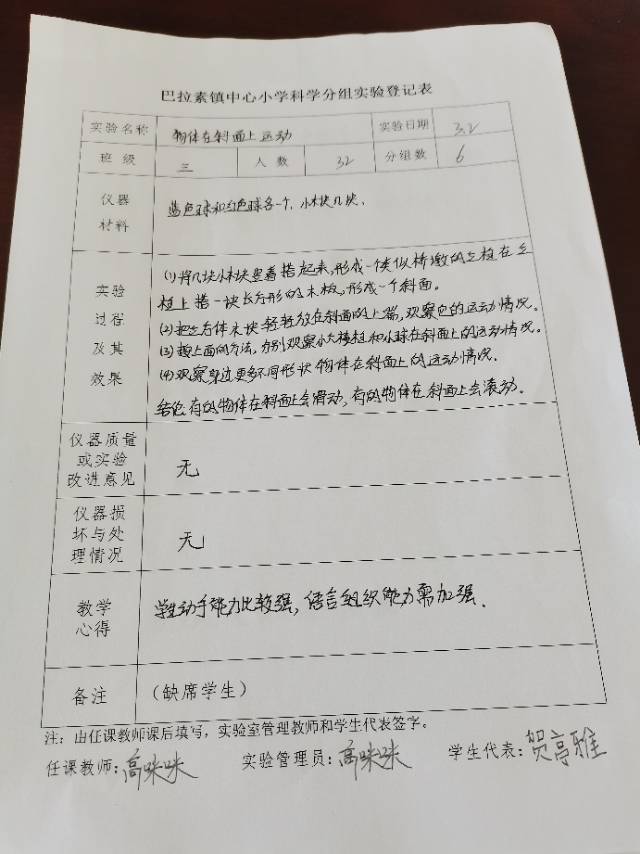 巴拉素镇中心小学科学分组实验登记表
实验名称 物体在斜面上运动 实验日期 3.2
班级 三 人数 32 分组数 6
仪器材料 蓝色球和红色球各一个、小木块几块、
实验过程及其效果
(1)将几块小木块竖着搭起来,形成一个类似桥墩的立柱在立
柱上搭一块长方形的木板,形成一个斜面。
(2)把立方体木块轻轻放在斜面的上端,观察它的运动情况。
(3)按上面的方法,分别观察小六棱柱和小球在斜面上的运动情况。
(4)观察身边更多不同形状物体在斜面上的运动情况.
结论 有的物体在斜面上会滑动,有的物体在斜面上会滚动.
仪器质量或实验改进意见 无
仪器损坏与处理情况 无
教学心得 学生动手能力比较强,语言组织能力需加强.
备注 (缺席学生)
注:由任课教师课后填写,实验室管理教师和学生代表签字。
任课教师:高咪咪 实验管理员:高咪咪 学生代表:贺亭雅